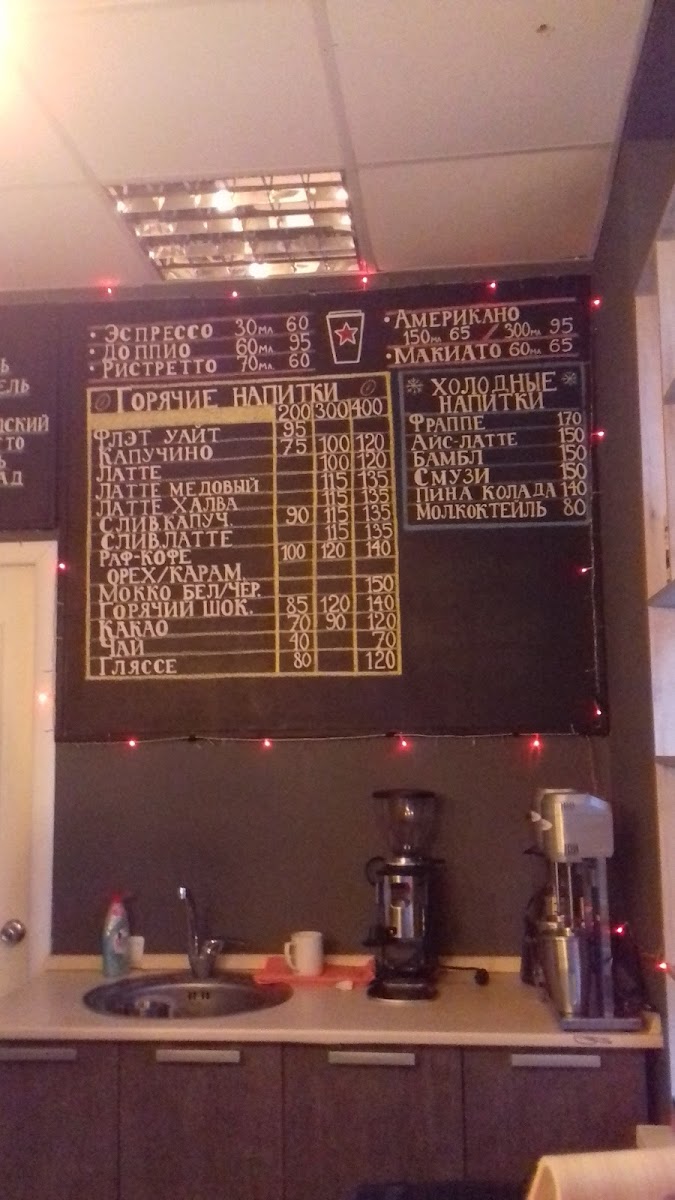 Ь
ЕЛЬ
СКИЙ
ТО
Ь
АД
• ЭСПРЕССО 30МЛ 60
• ДОППИО 60МЛ 95
• РИСТРЕТТО 70МЛ 60
• АМЕРИКАНО
150МЛ 65 / 300МЛ 95
• МАКИАТО 60МЛ 65
ГОРЯЧИЕ НАПИТКИ
200 300 400
ФЛЭТ УАЙТ 95
КАПУЧИНО 75 100 120
ЛАТТЕ 100 120
ЛАТТЕ МЕДОВЫЙ 115 135
ЛАТТЕ ХАЛВА 115 135
СЛИВ.КАПУЧ. 90 115 135
СЛИВ.ЛАТТЕ 115 135
РАФ-КОФЕ 100 120 140
ОРЕХ/КАРАМ.
МОККО БЕЛ/ЧЕР. 150
ГОРЯЧИЙ ШОК. 85 120 140
КАКАО 70 90 120
ЧАЙ 40 70
ГЛЯССЕ 80 120
ХОЛОДНЫЕ
НАПИТКИ
ФРАППЕ 170
АЙС-ЛАТТЕ 150
БАМБЛ 150
СМУЗИ 150
ПИНА КОЛАДА 140
МОЛКОКТЕЙЛЬ 80